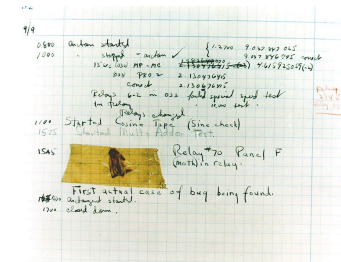 9/9
0800 antan started
1000 " stopped - antan ✓ { 1.2700 9.037 847 025
9.037 846 795 correct
13" uc (032) MP - MC 2.130476415 4.615925059(-2)
033 PRO 2 2.130476415
correct 2.130676415
Relays 6-2 in 033 failed special speed test
in relay " test.
Relays changed
1100 Started Cosine Tape (Sine check)
1525 Started Multi Adder Test.
1545 Relay #70 Panel F
(moth) in relay.
First actual case of bug being found.
antangent started.
1700 closed down.